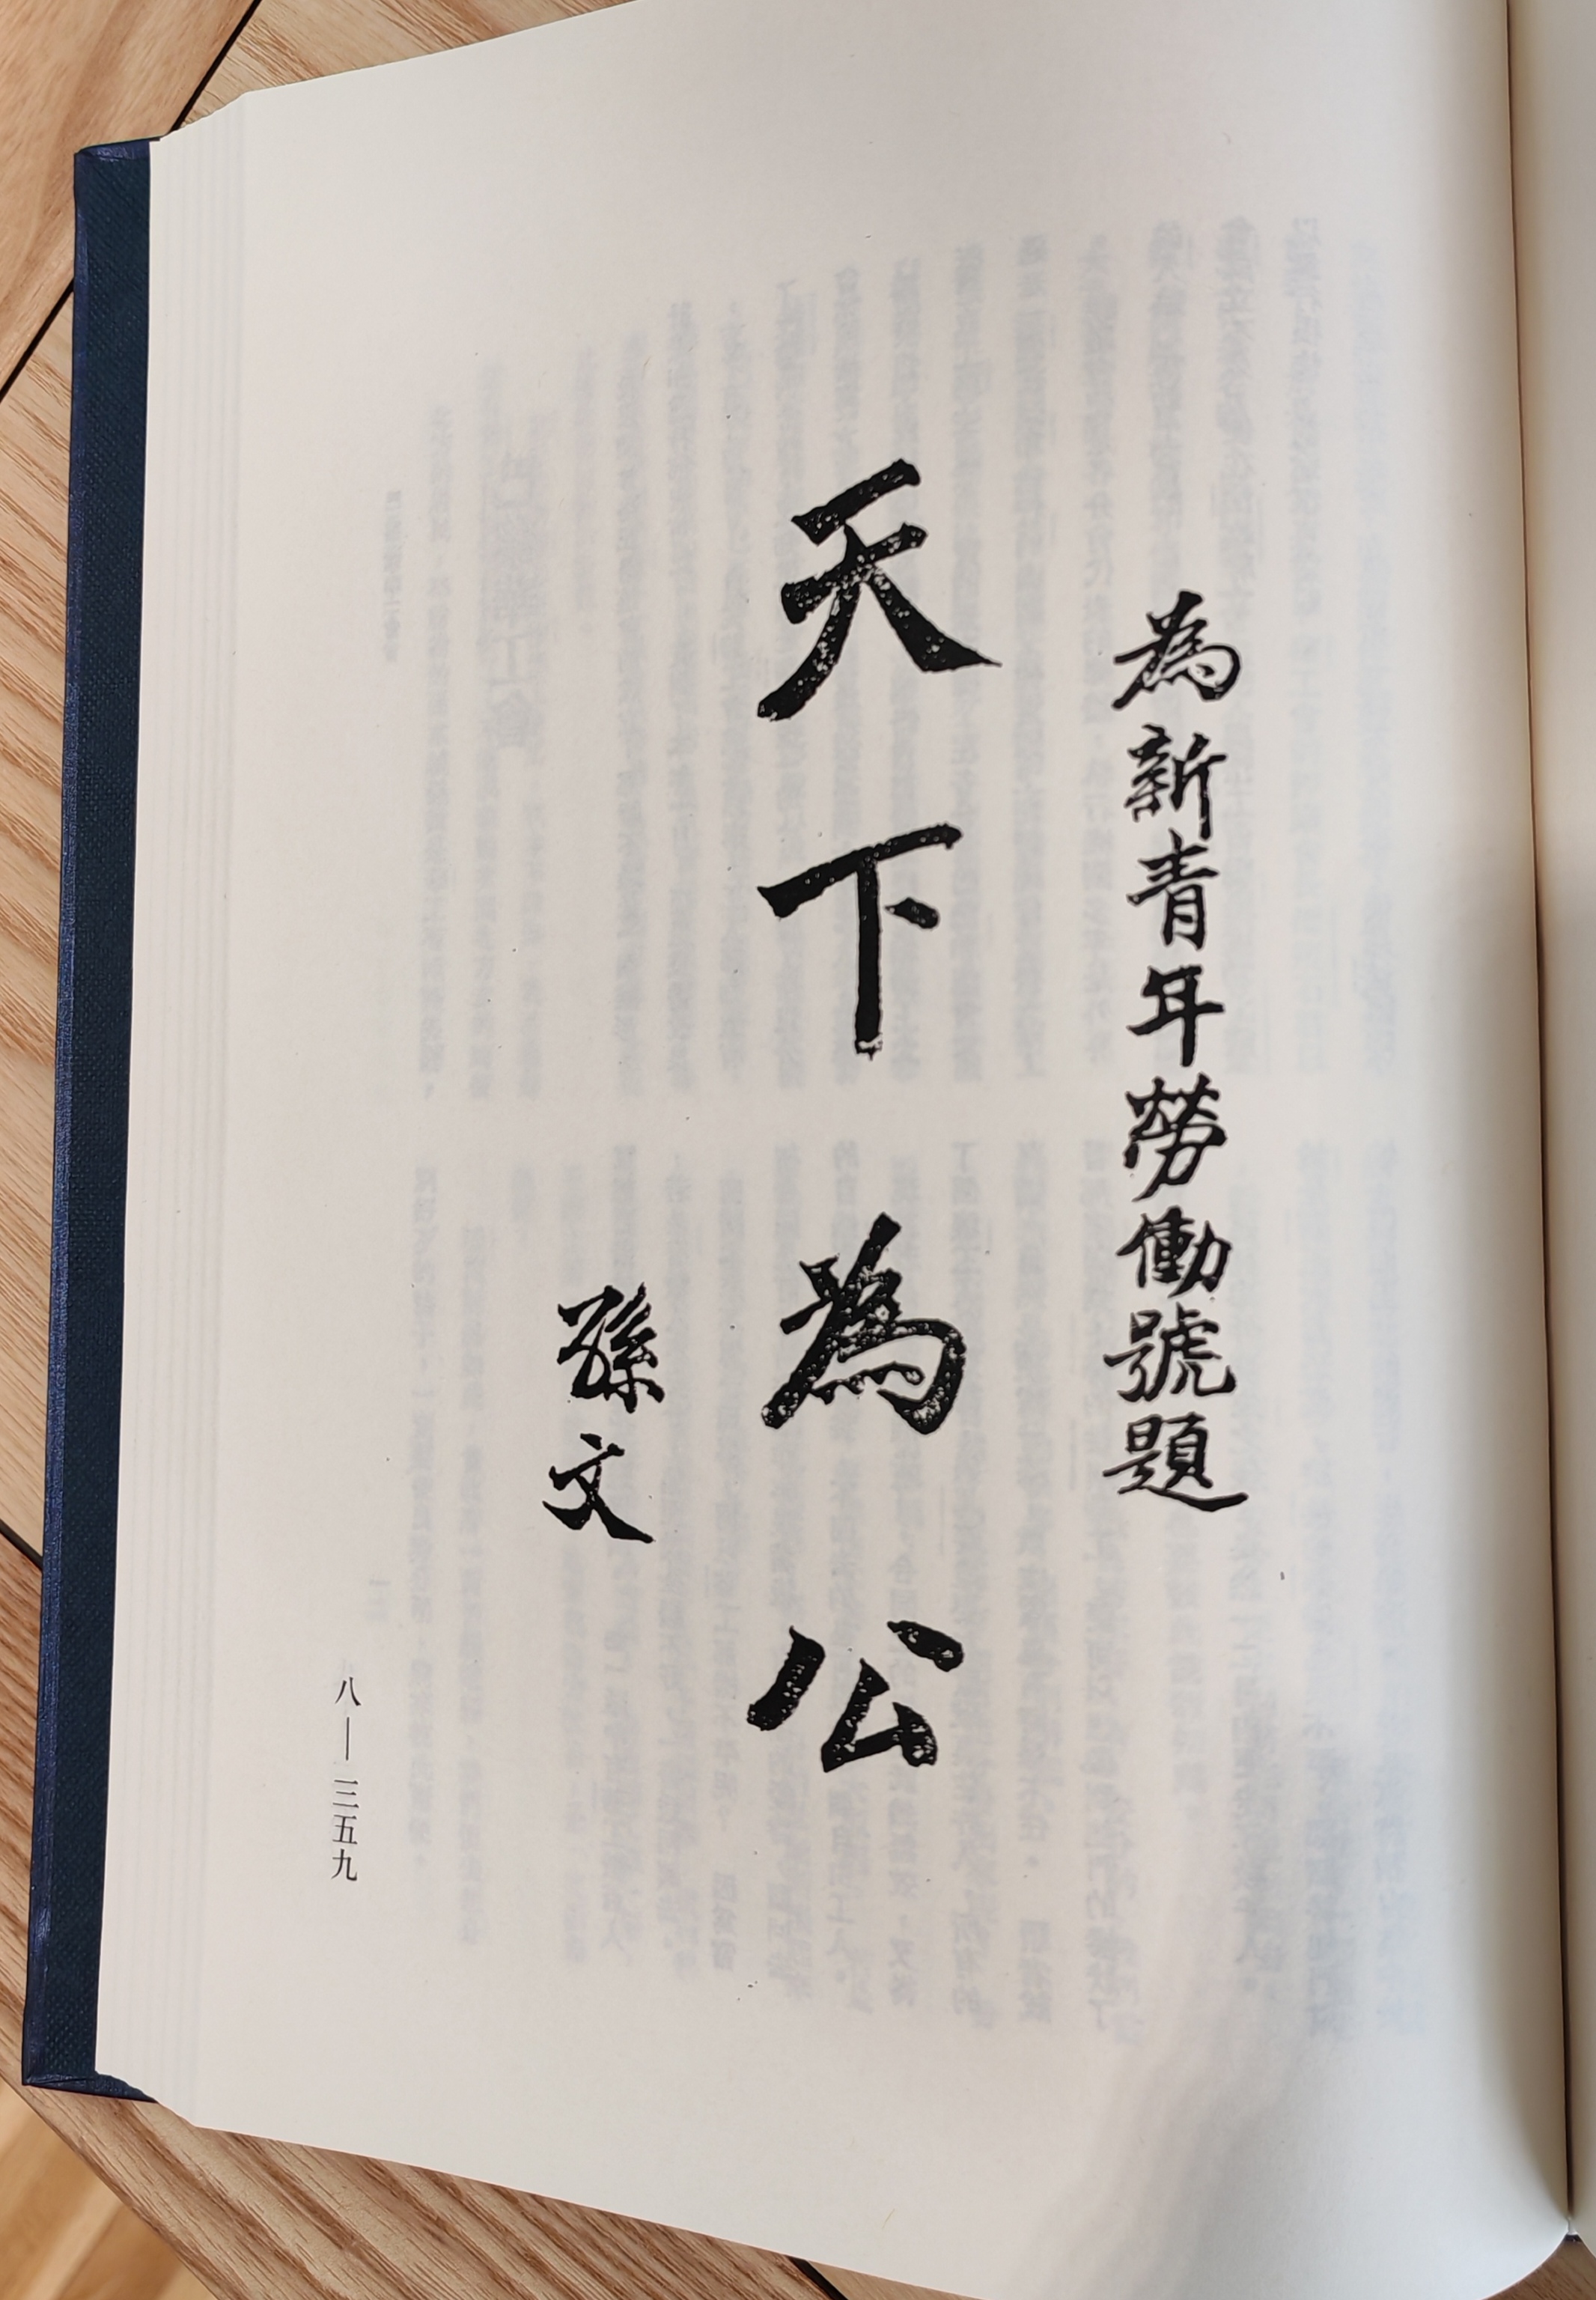 為新青年勞働號題
天下為公
孫文
八—三五九